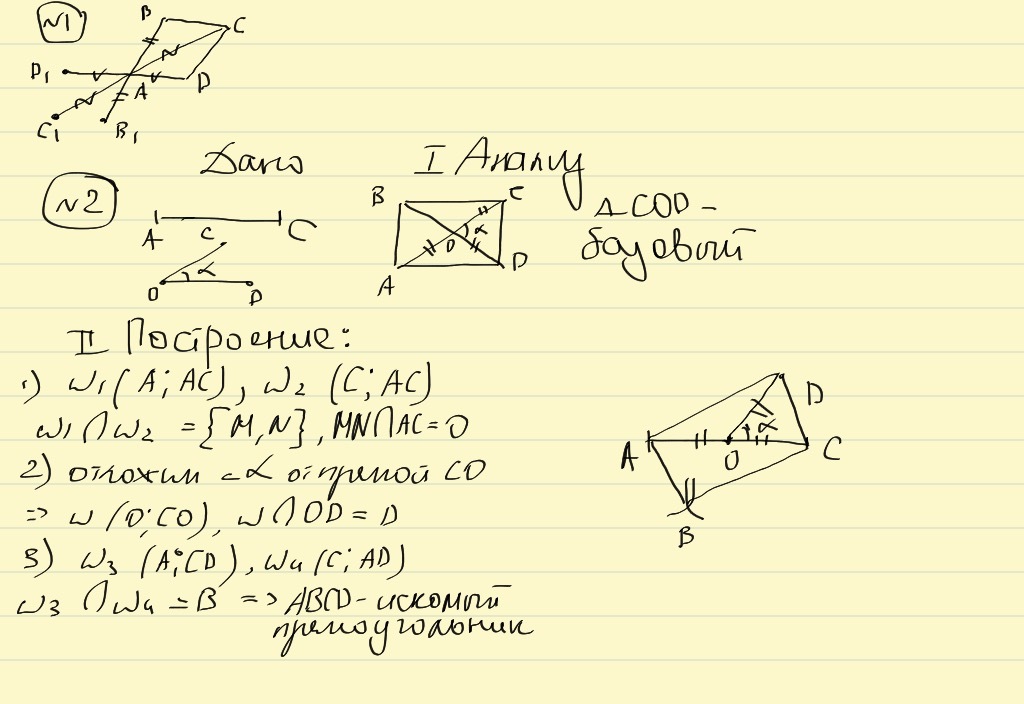 N1
B
C
D1
D
A
C1
B1
Дано
I Анализ
N2
B
C
A
C
C
α
O
D
O
α
A
D
ΔCOD -
базовый
II Построение:
1) ω1(A; AC), ω2 (C; AC)
ω1 ∩ ω2 = {M, N}, MN∩AC = O
2) отложим ∠α от прямой CO
=> ω (O; CO), ω ∩ OD = D
3) ω3 (A; CD), ω4 (C; AD)
ω3 ∩ ω4 = B => ABCD - искомый
прямоугольник
D
α
A
O
C
B